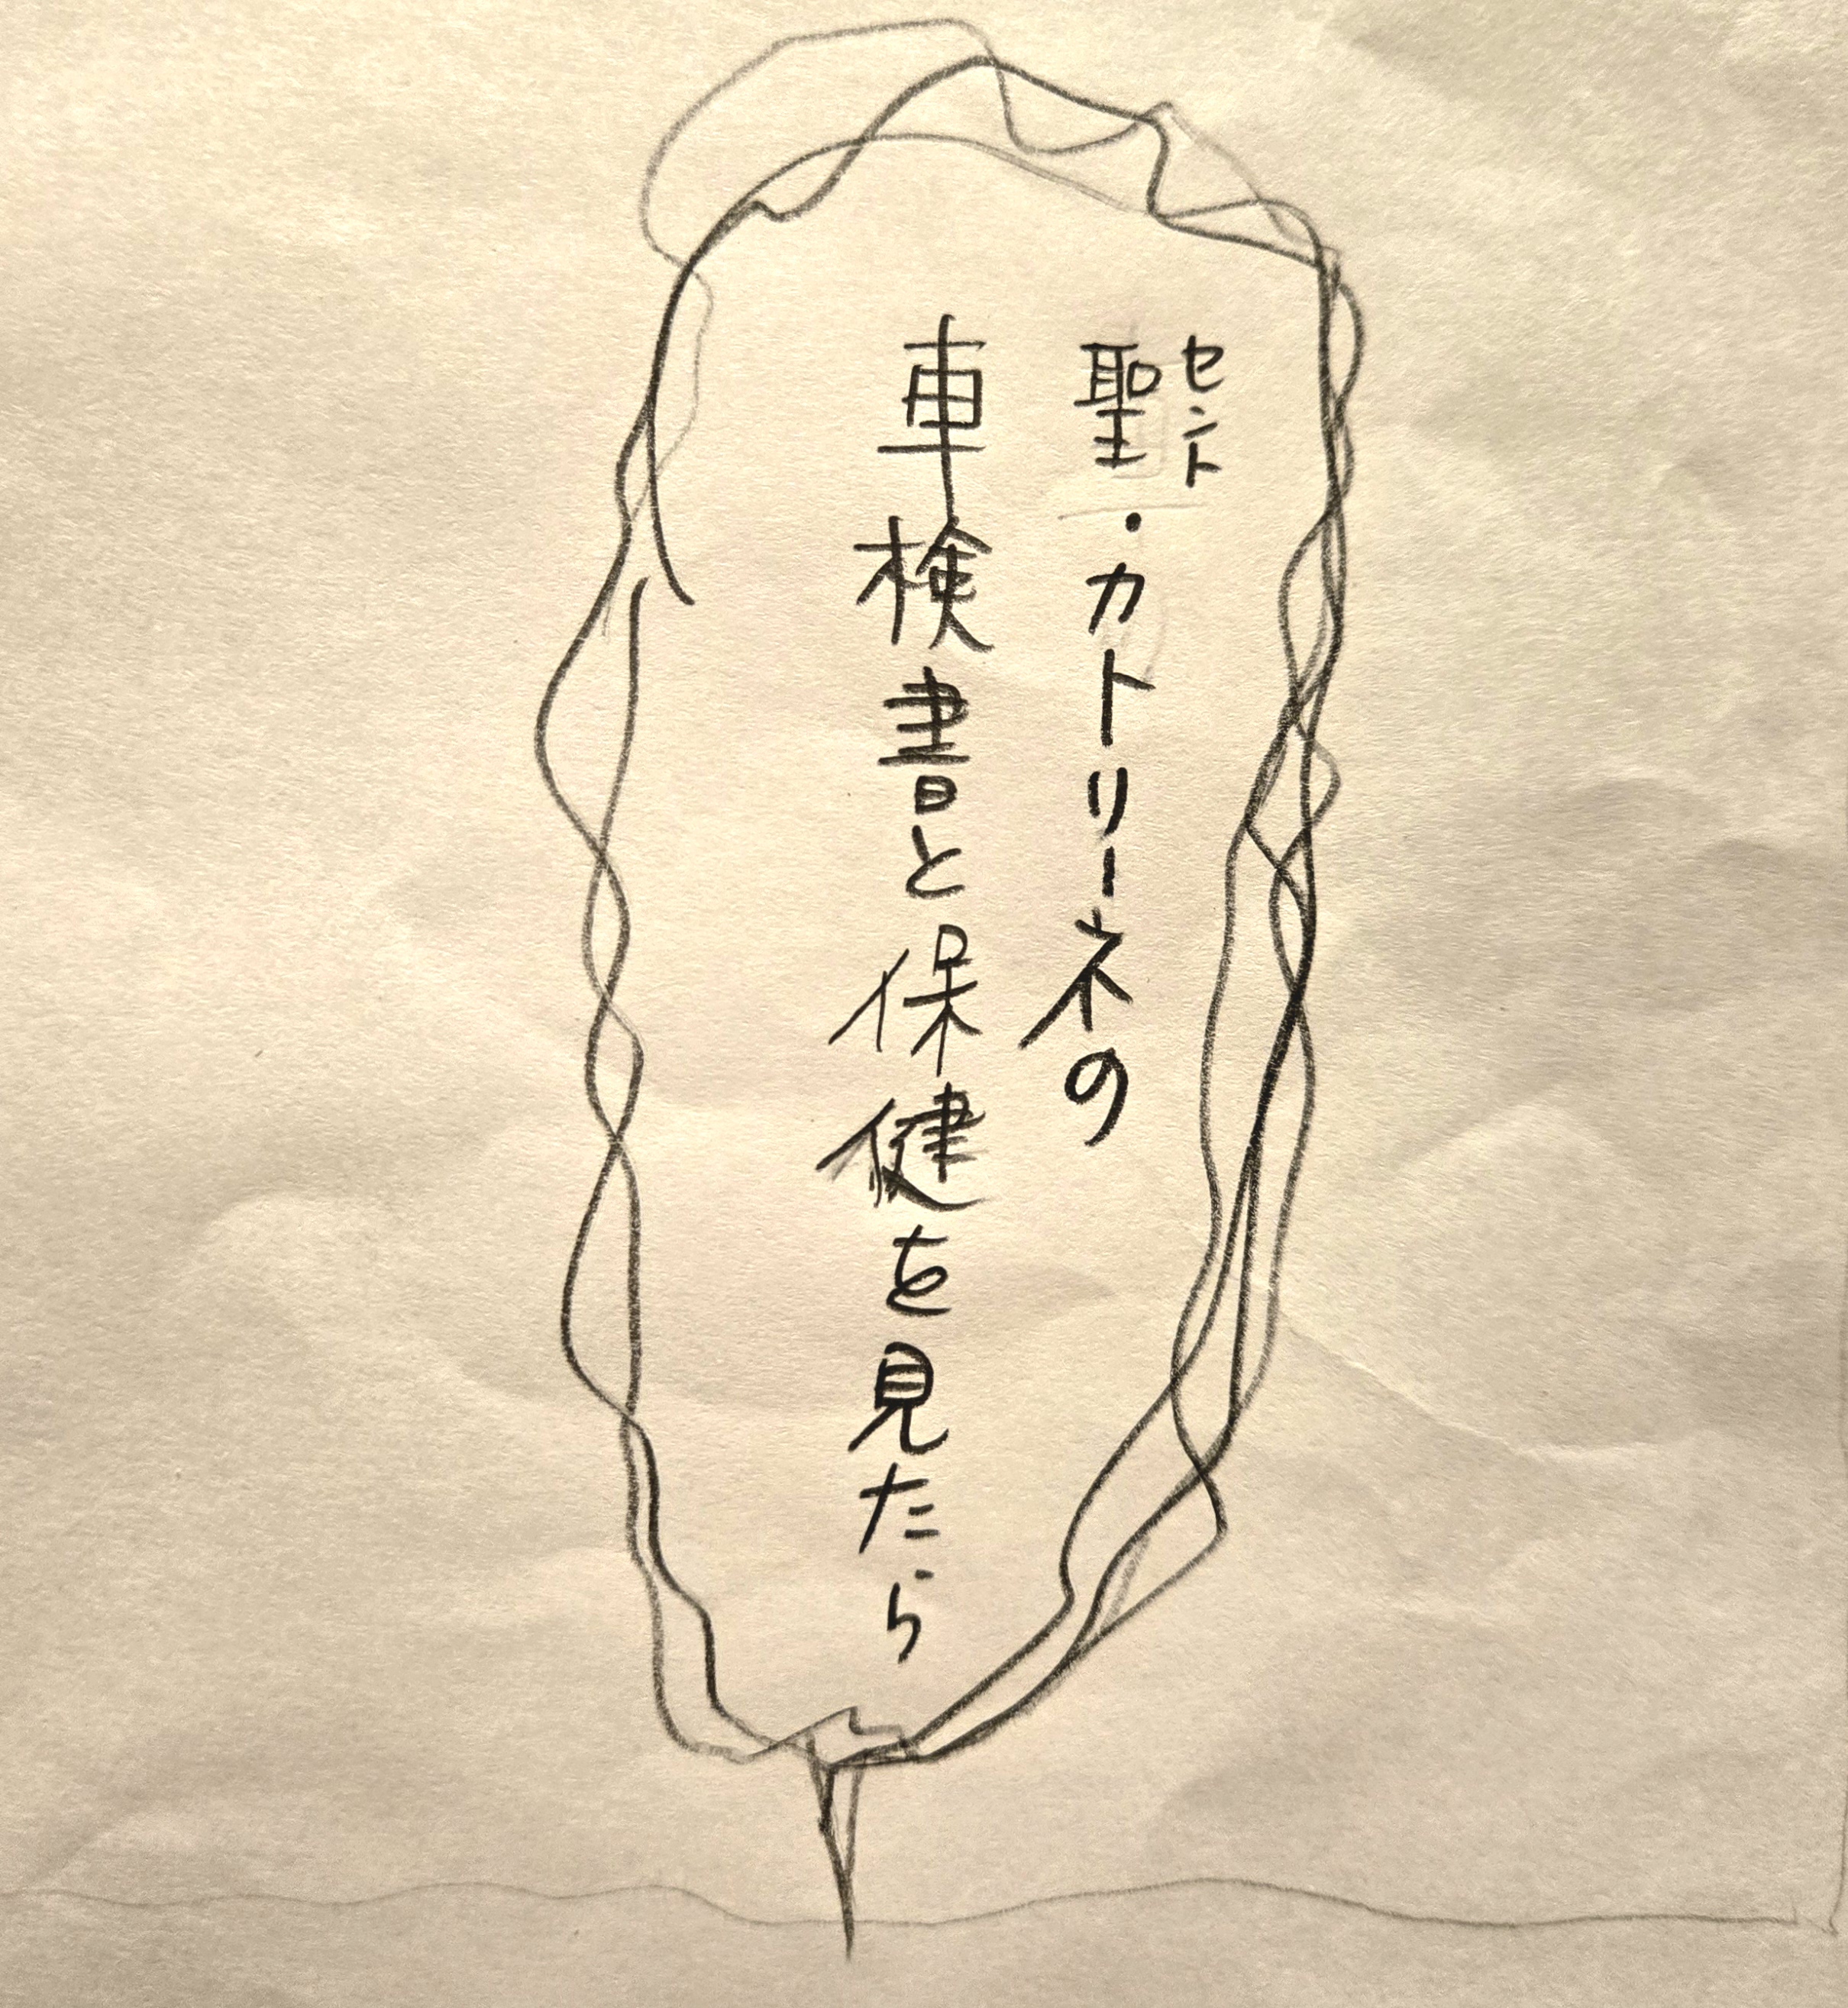 聖・カトリーネの
セント
車検書と保健を見たら